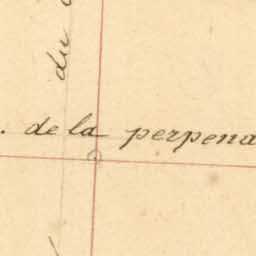 du
. de la perpena